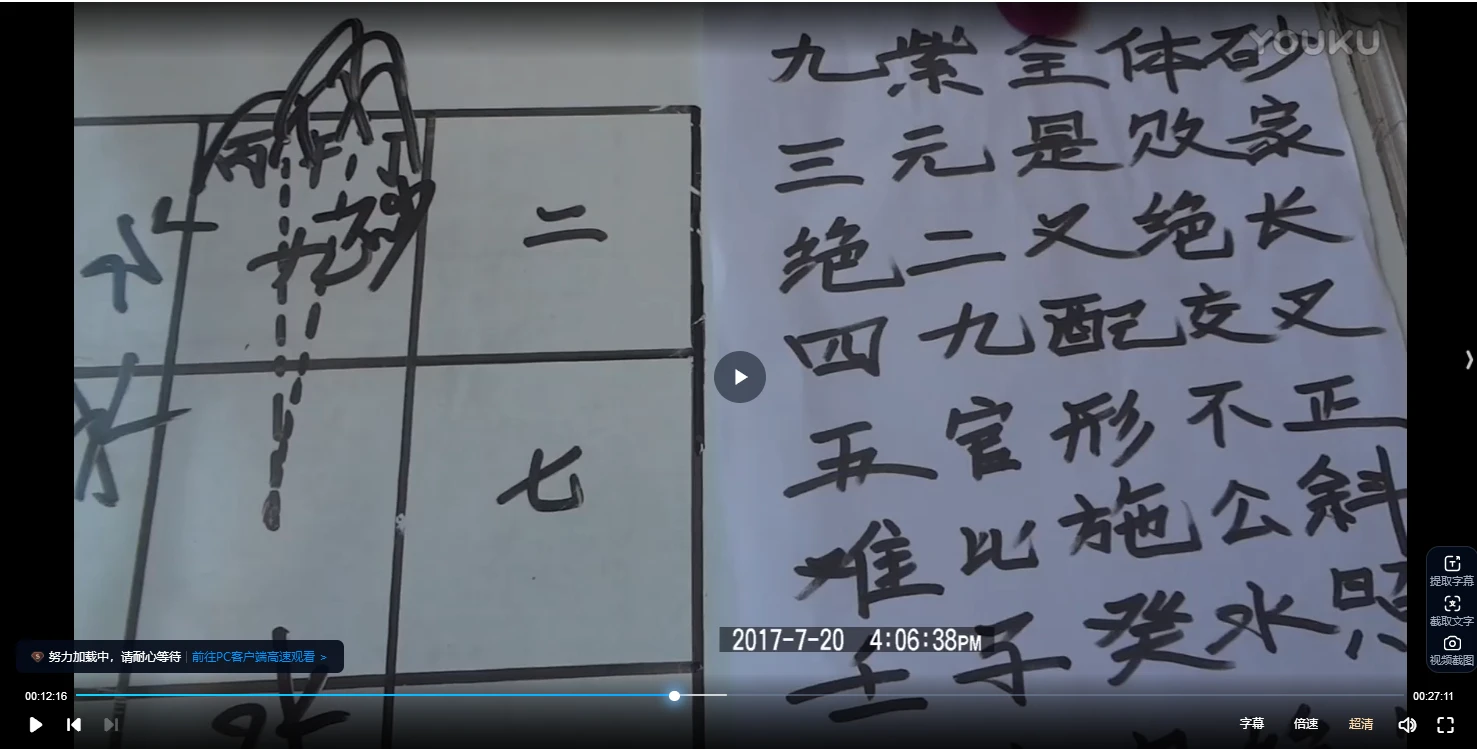 YOUKU
九紫全体砂
三元是败家
绝二义绝长
四九配交叉
五官形不正
难比施公斜
壬子癸水照
丙午丁
九砂
二
七
2017-7-20 4:06:38PM
提取字幕
截取文字
视频截图
努力加载中，请耐心等待 前往PC客户端高速观看 >
00:12:16
00:27:11
字幕 倍速 超清